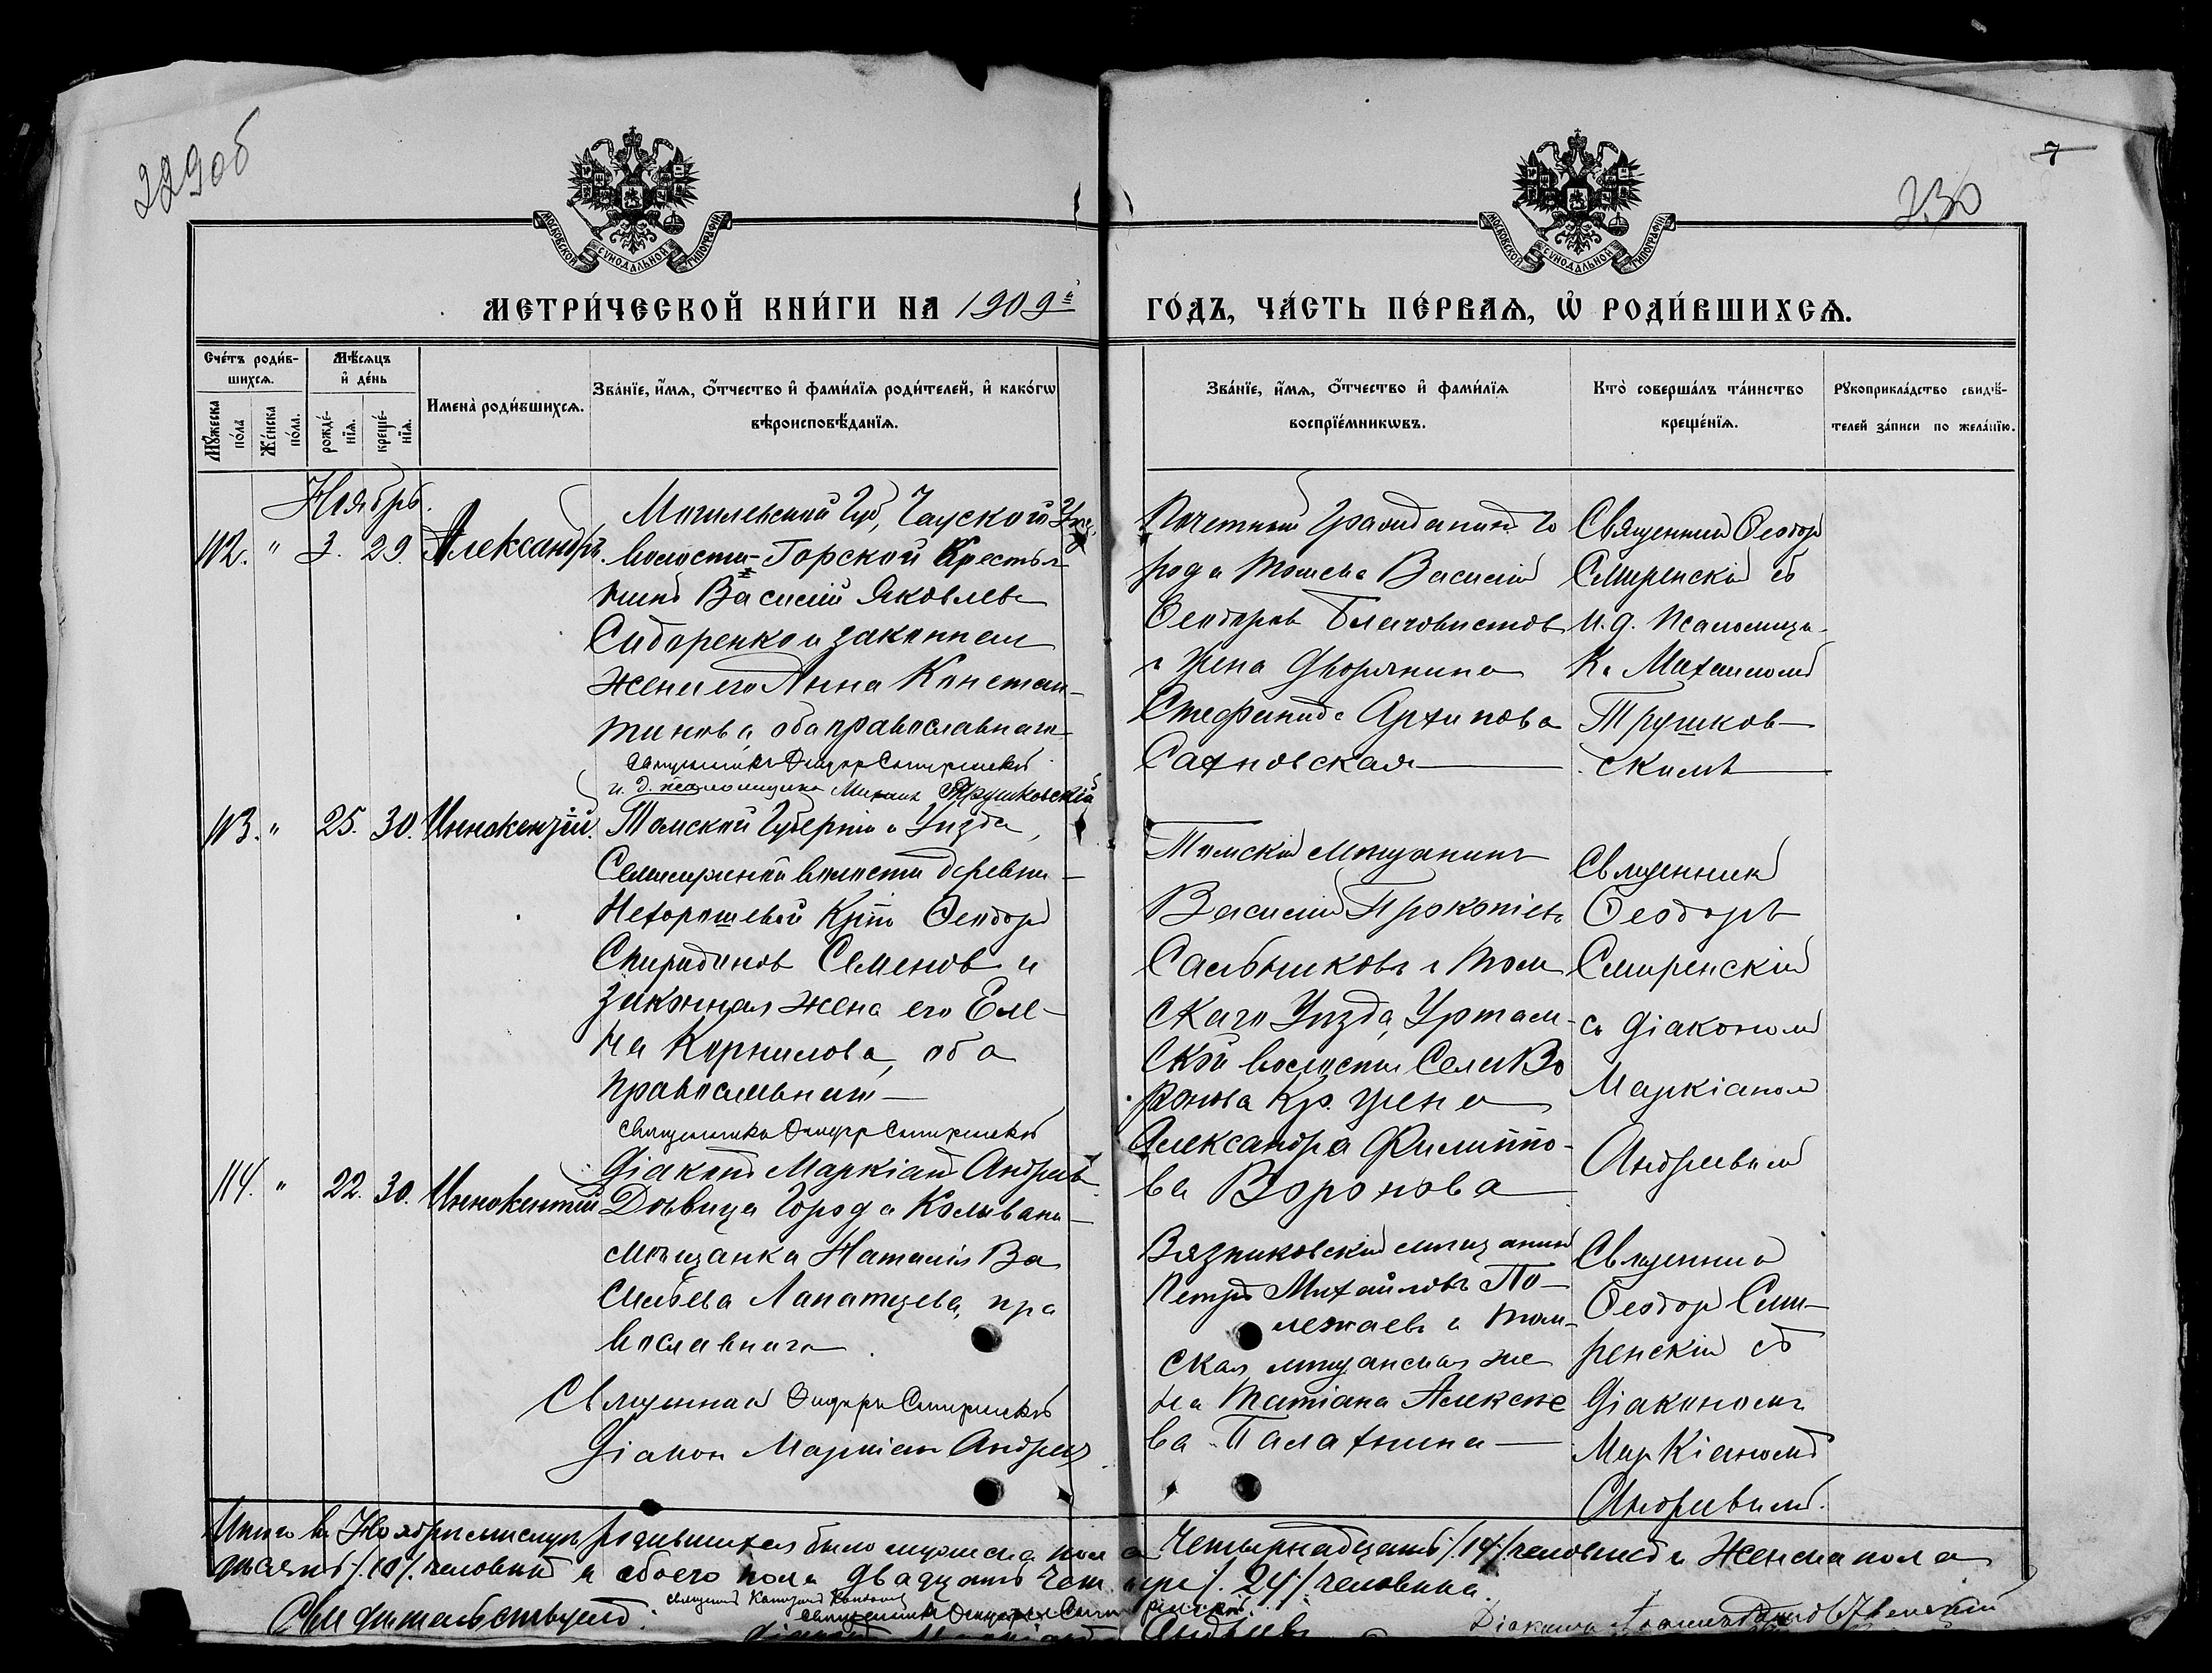 229об
230
7
МОСКОВСКОЙ СѴНОДАЛЬНОЙ ТИПОГРАФІИ
МОСКОВСКОЙ СѴНОДАЛЬНОЙ ТИПОГРАФІИ
МЕТРИ́ЧЕСКОЙ КНИ́ГИ НА 1909й
ГО́ДЪ, ЧА́СТЬ ПЕ́РВАѦ, Ѡ РОДИ́ВШИХСѦ.
Сче́тъ роди́в-
шихсѧ.
Мꙋ́жеска по́ла
Же́нска по́ла.
Мѣ́сѧцъ
и҆ де́нь
рожде́-
нїѧ.
креще́-
нїѧ.
Имена̀ роди́вшихсѧ.
Зва́нїе, и҆́мѧ, ѻ҆́тчество и҆ фами́лїѧ роди́телей, и҆ како́гѡ
вѣроисповѣ́данїѧ.
Зва́нїе, и҆́мѧ, ѻ҆́тчество и҆ фами́лїѧ
воспрїе́мникѡвъ.
Кто̀ соверша́лъ та́инство
креще́нїѧ.
Рꙋкоприкла́дство свидѣ́-
телей за́писи по жела́нїю.
Ноябрь.
112. " 3. 29. Александръ.
Могилевской Губ, Чауской Уѣз.
волости Горской Крестья
нинъ Василій Яковлевъ
Сидоренко и законная
жена его Анна Констан-
тинова, оба православнаго
Священникъ Ѳеодоръ Смиренскій
и. д. псаломщика Михаилъ Трушковскій
Почетный Гражданинъ Го
рода Томска Василій
Ѳеодоровъ Благовистовъ
и жена Дворянина
Стефанида Архипова
Сахновская
Священник Ѳеодор
Смиренскій съ
и. д. Псаломщи-
ка Михаиломъ
Трушков-
скимъ
113. " 25. 30. Иннокентій.
Томской Губерніи и Уѣзда,
Семилужной волости деревни
Нехорошевой Кр-нъ Ѳеодоръ
Спиридонов Семенов и
законная жена его Еле-
на Корнилова, оба
православнаго
Священникъ Ѳеодоръ Смиренскій
Діаконъ Маркіанъ Андреевъ
Томскій мѣщанинъ
Василій Прокопіевъ
Сальниковъ и Том
скаго Уѣзда, Уртам-
ской волости Села Во
ронова Кр. жена
Александра Филиппо-
ва Воронова
Священникъ
Ѳеодоръ
Смиренскій
съ Діакономъ
Маркіаномъ
Андреевымъ
114. " 22. 30. Иннокентій
Дѣвица Города Колывани
мѣщанка Наталія Ва
сильева Лапатцева, пра
вославнаго
Священникъ Ѳеодоръ Смиренскій
Діаконъ Маркіанъ Андреевъ
Вязниковскій мѣщанинъ
Петръ Михайловъ По-
лежаевъ и Том-
ская мѣщанская же
на Татіана Алексѣе
ва Палатнина
Священникъ
Ѳеодоръ Сми-
ренскій съ
Діакономъ
Маркіаномъ
Андреевымъ.
Итого въ Ноябрѣ мѣсяцѣ родившихся было мужеска пола Четырнадцать /.14/ человѣкъ и Женска пола
десять /.10/. человѣкъ и обоего пола двадцать четыре /. 24/ человѣка.
Свидѣтельствуемъ:
Священникъ Ѳеодоръ Смиренскій